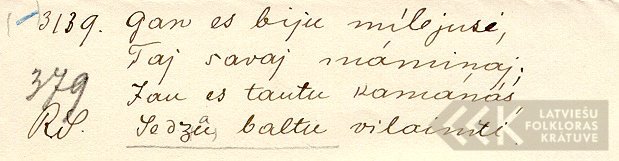 3139. Gan es biju mīlejusē,
Taj savaj māmiņaj;
379 Jau es tautu kamanās
RS. Sedzū, baltu vilainīti.
LATVIEŠU
FOLKLORAS
KRĀTUVE